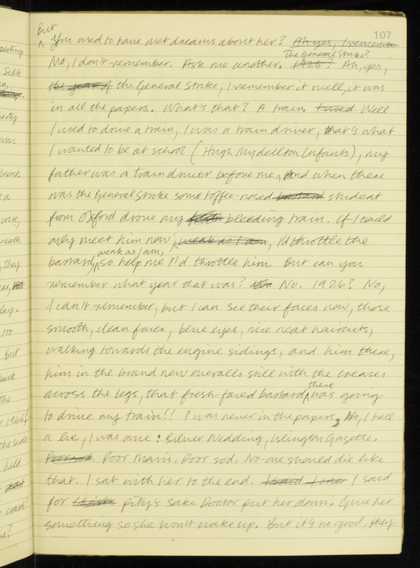 107
But
^ You used to have wet dreams about her? Ah yes, I remember
The General Strike?
No, I don't remember. Ask me another. 1926? Ah, yes,
the year of the General Strike, I remember it well, it was
in all the papers. What's that? A train. Well
I used to drive a train, I was a train driver, that's what
I wanted to be at school (Hugh Myddelton Infants), my
father was a train driver before me, and when there
was the General Strike some toffee-nosed bastard student
from Oxford drove my bleeding train. If I could
only meet him now, weak as I am, I'd throttle the
weak as I am,
bastard, so help me I'd throttle him. But can you
remember what year that was? No. 1926? No,
I can't remember, but I can see their faces now, those
smooth, clean faces, blue eyes, nice neat haircuts,
walking towards the engine sidings, and him there,
him in the brand new overalls still with the creases
across the legs, that fresh-faced bastard, was going
there
to drive my train!! I was never in the papers, Ah, I tell
a lie, I was once: Silver Wedding, Islington Gazette.
Poor Mavis. Poor sod. No-one should die like
that. I sat with her to the end. I said
for pity's sake Doctor put her down. Give her
something so she won't wake up. But it's no good, they